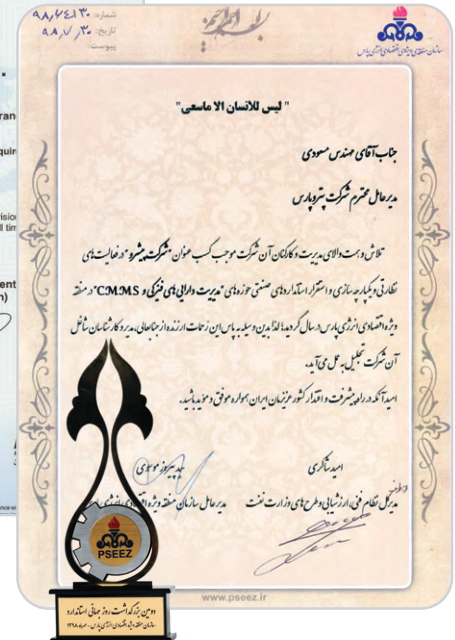 شماره: ۹۸/۷۴۱۳۰
تاریخ: ۹۸/۷/۳۰
پیوست:
سازمان منطقه ویژه اقتصادی انرژی پارس
" لیس للانسان الا ماسعی"
جناب آقای مهندس مسعودی
مدیرعامل محترم شرکت پتروپارس
تلاش و همت والای مدیریت و کارکنان آن شرکت موجب کسب عنوان "شرکت پیشرو" در فعالیت‌های
نظارتی و یکپارچه سازی و استقرار استانداردهای صنعتی حوزه‌های "مدیریت دارایی‌های فیزیکی و C.M.M.S" در منطقه
ویژه اقتصادی انرژی پارس در سال گردید؛ لذا بدین وسیله به پاس این زحمات ارزنده از جنابعالی، مدیر و کارشناسان شاغل
آن شرکت تجلیل به عمل می‌آید.
امید آنکه در راه پیشرفت و اقتدار کشور عزیزمان ایران همواره موفق و مؤید باشید.
امید شاکری
سید پیروز موسوی
مدیرکل نظام فنی، ارزشیابی و طرح‌های وزارت نفت
مدیرعامل سازمان منطقه ویژه اقتصادی انرژی پارس
PSEEZ
www.pseez.ir
دومین بزرگداشت روز جهانی استاندارد
سازمان منطقه ویژه اقتصادی انرژی پارس - مهرماه ۱۳۹۸